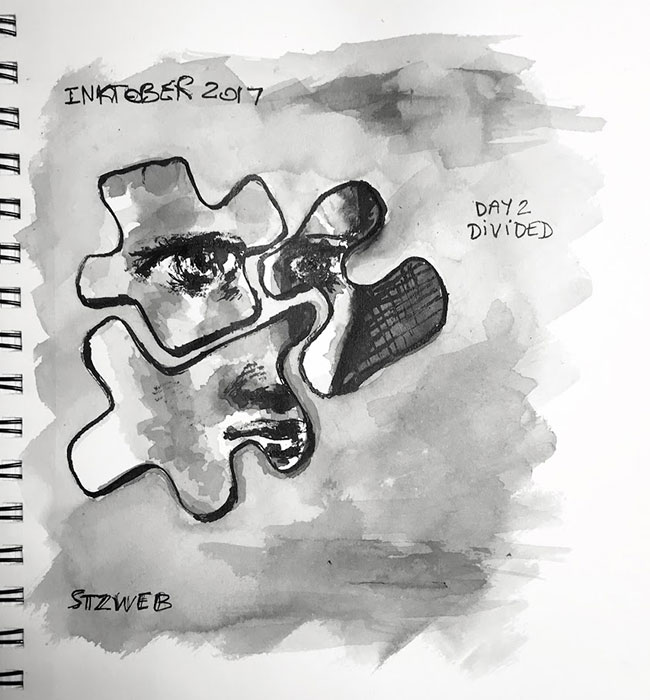 INKTOBER 2017
DAY 2
DiViDED
STZWEB